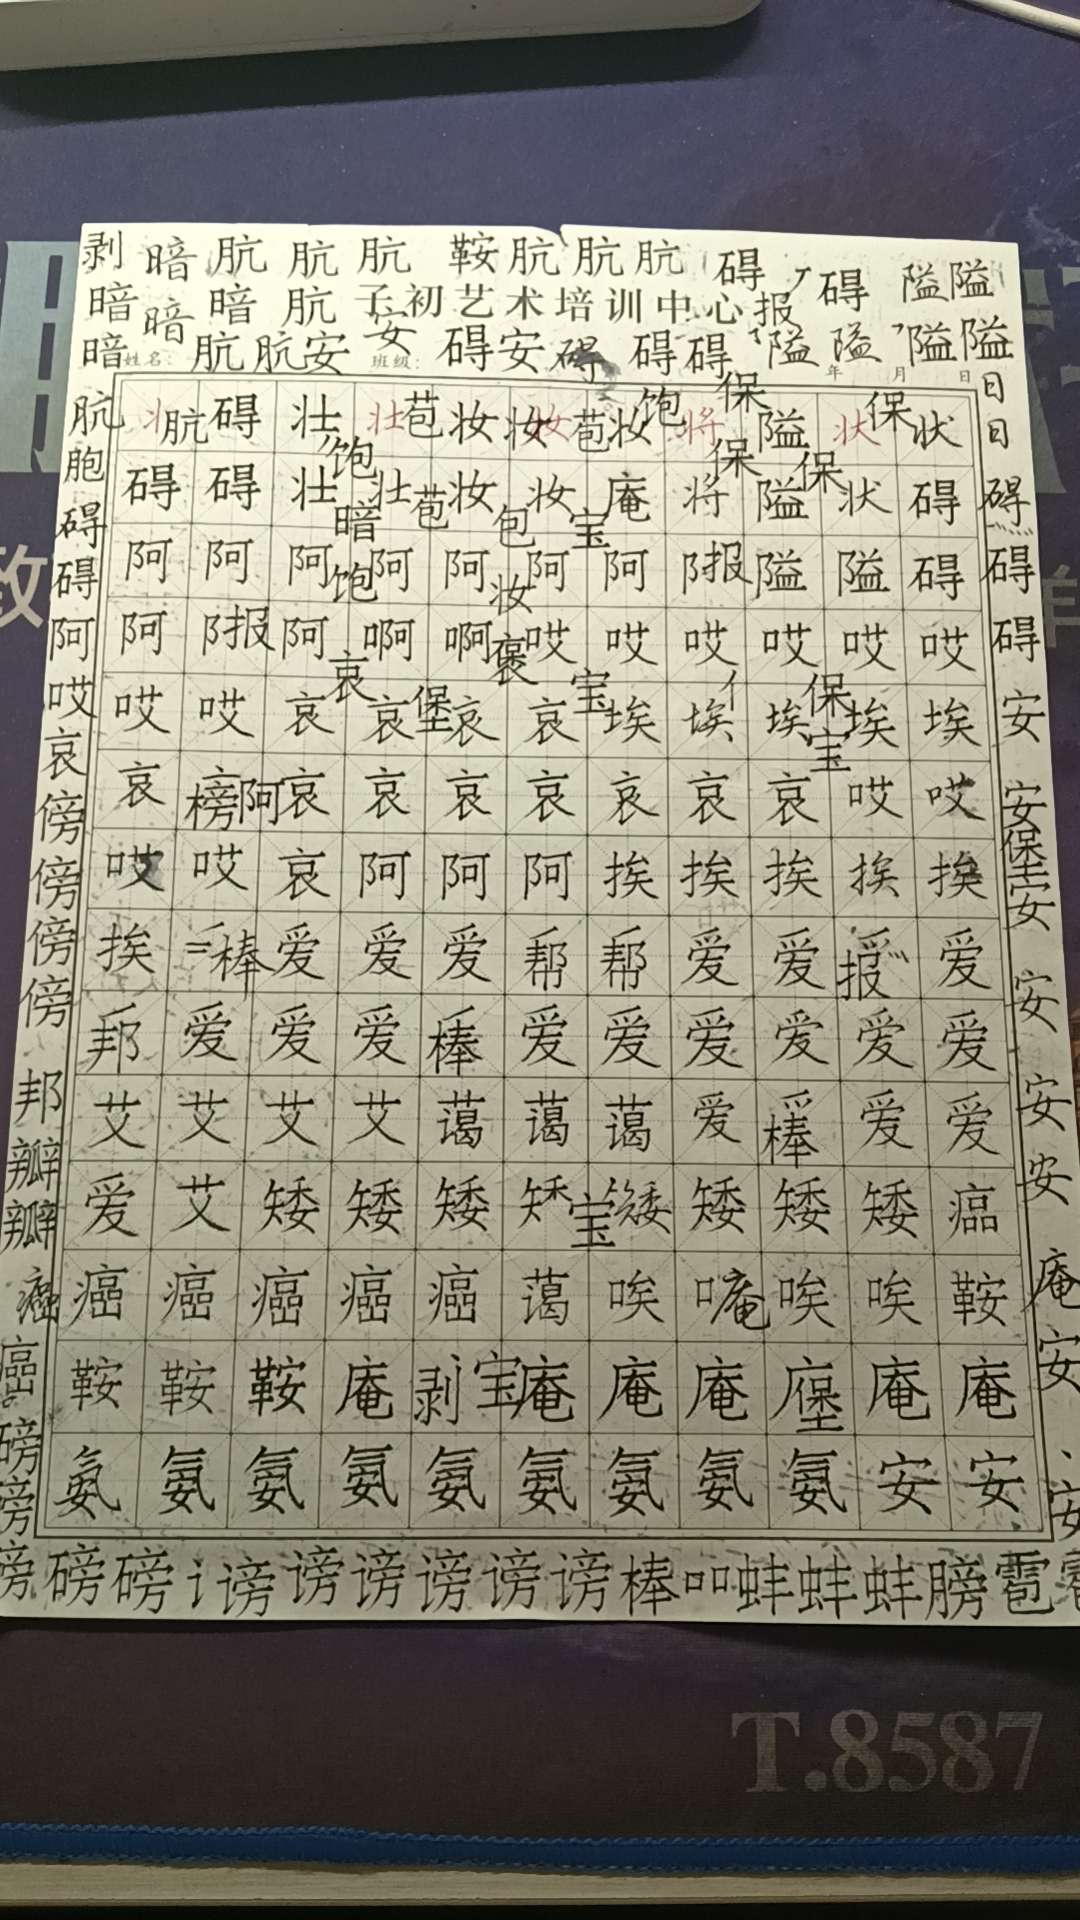 剥 暗 肮 肮 肮 鞍 肮 肮 肮 碍 碍 隘 隘
暗 暗 暗 肮 子初艺术培训中心 安 报
暗 姓名: 肮 肮 安 班级: 碍 安 碍 碍 碍 隘 隘 隘 隘 年 月 日
肮 壮 肮 碍 壮 壮 苞 妆 妆 妆 苞 妆 饱 将 保 隘 状 保 状 日 日
胞 饱 保 保
碍 碍 碍 壮 暗 壮 苞 妆 包 妆 宝 庵 将 隘 状 碍 碍
碍 阿 阿 阿 饱 阿 阿 妆 阿 阿 报 隘 隘 碍 碍
阿 阿 报 阿 啊 啊 褒 哎 哎 哎 哎 哎 哎 碍
哎 哎 哎 哀 哀 哀 堡 哀 哀 宝 埃 埃 埃 保 宝 埃 埃 安
哀 哀 榜 阿 哀 哀 哀 哀 哀 哀 哀 哎 哎 安
傍 哎 哎 哀 阿 阿 阿 挨 挨 挨 挨 挨 堡 安
傍 挨 棒 爱 爱 爱 帮 帮 爱 爱 报 爱
傍 邦 爱 爱 爱 棒 爱 爱 爱 爱 爱 爱 安
傍 艾 艾 艾 艾 蔼 蔼 蔼 爱 棒 爱 爱 安
邦 爱 艾 矮 矮 矮 宝 矮 矮 矮 矮 癌 安
瓣 瓣 癌 癌 癌 癌 癌 癌 蔼 唉 庵 唉 唉 鞍 庵
癌 鞍 鞍 鞍 庵 剥 宝 庵 庵 庵 堡 庵 庵 安
磅 氨 氨 氨 氨 氨 氨 氨 氨 氨 安 安 安
谤 谤 磅 磅 谤 谤 谤 谤 谤 谤 棒 蚌 蚌 蚌 膀 雹
T.8587